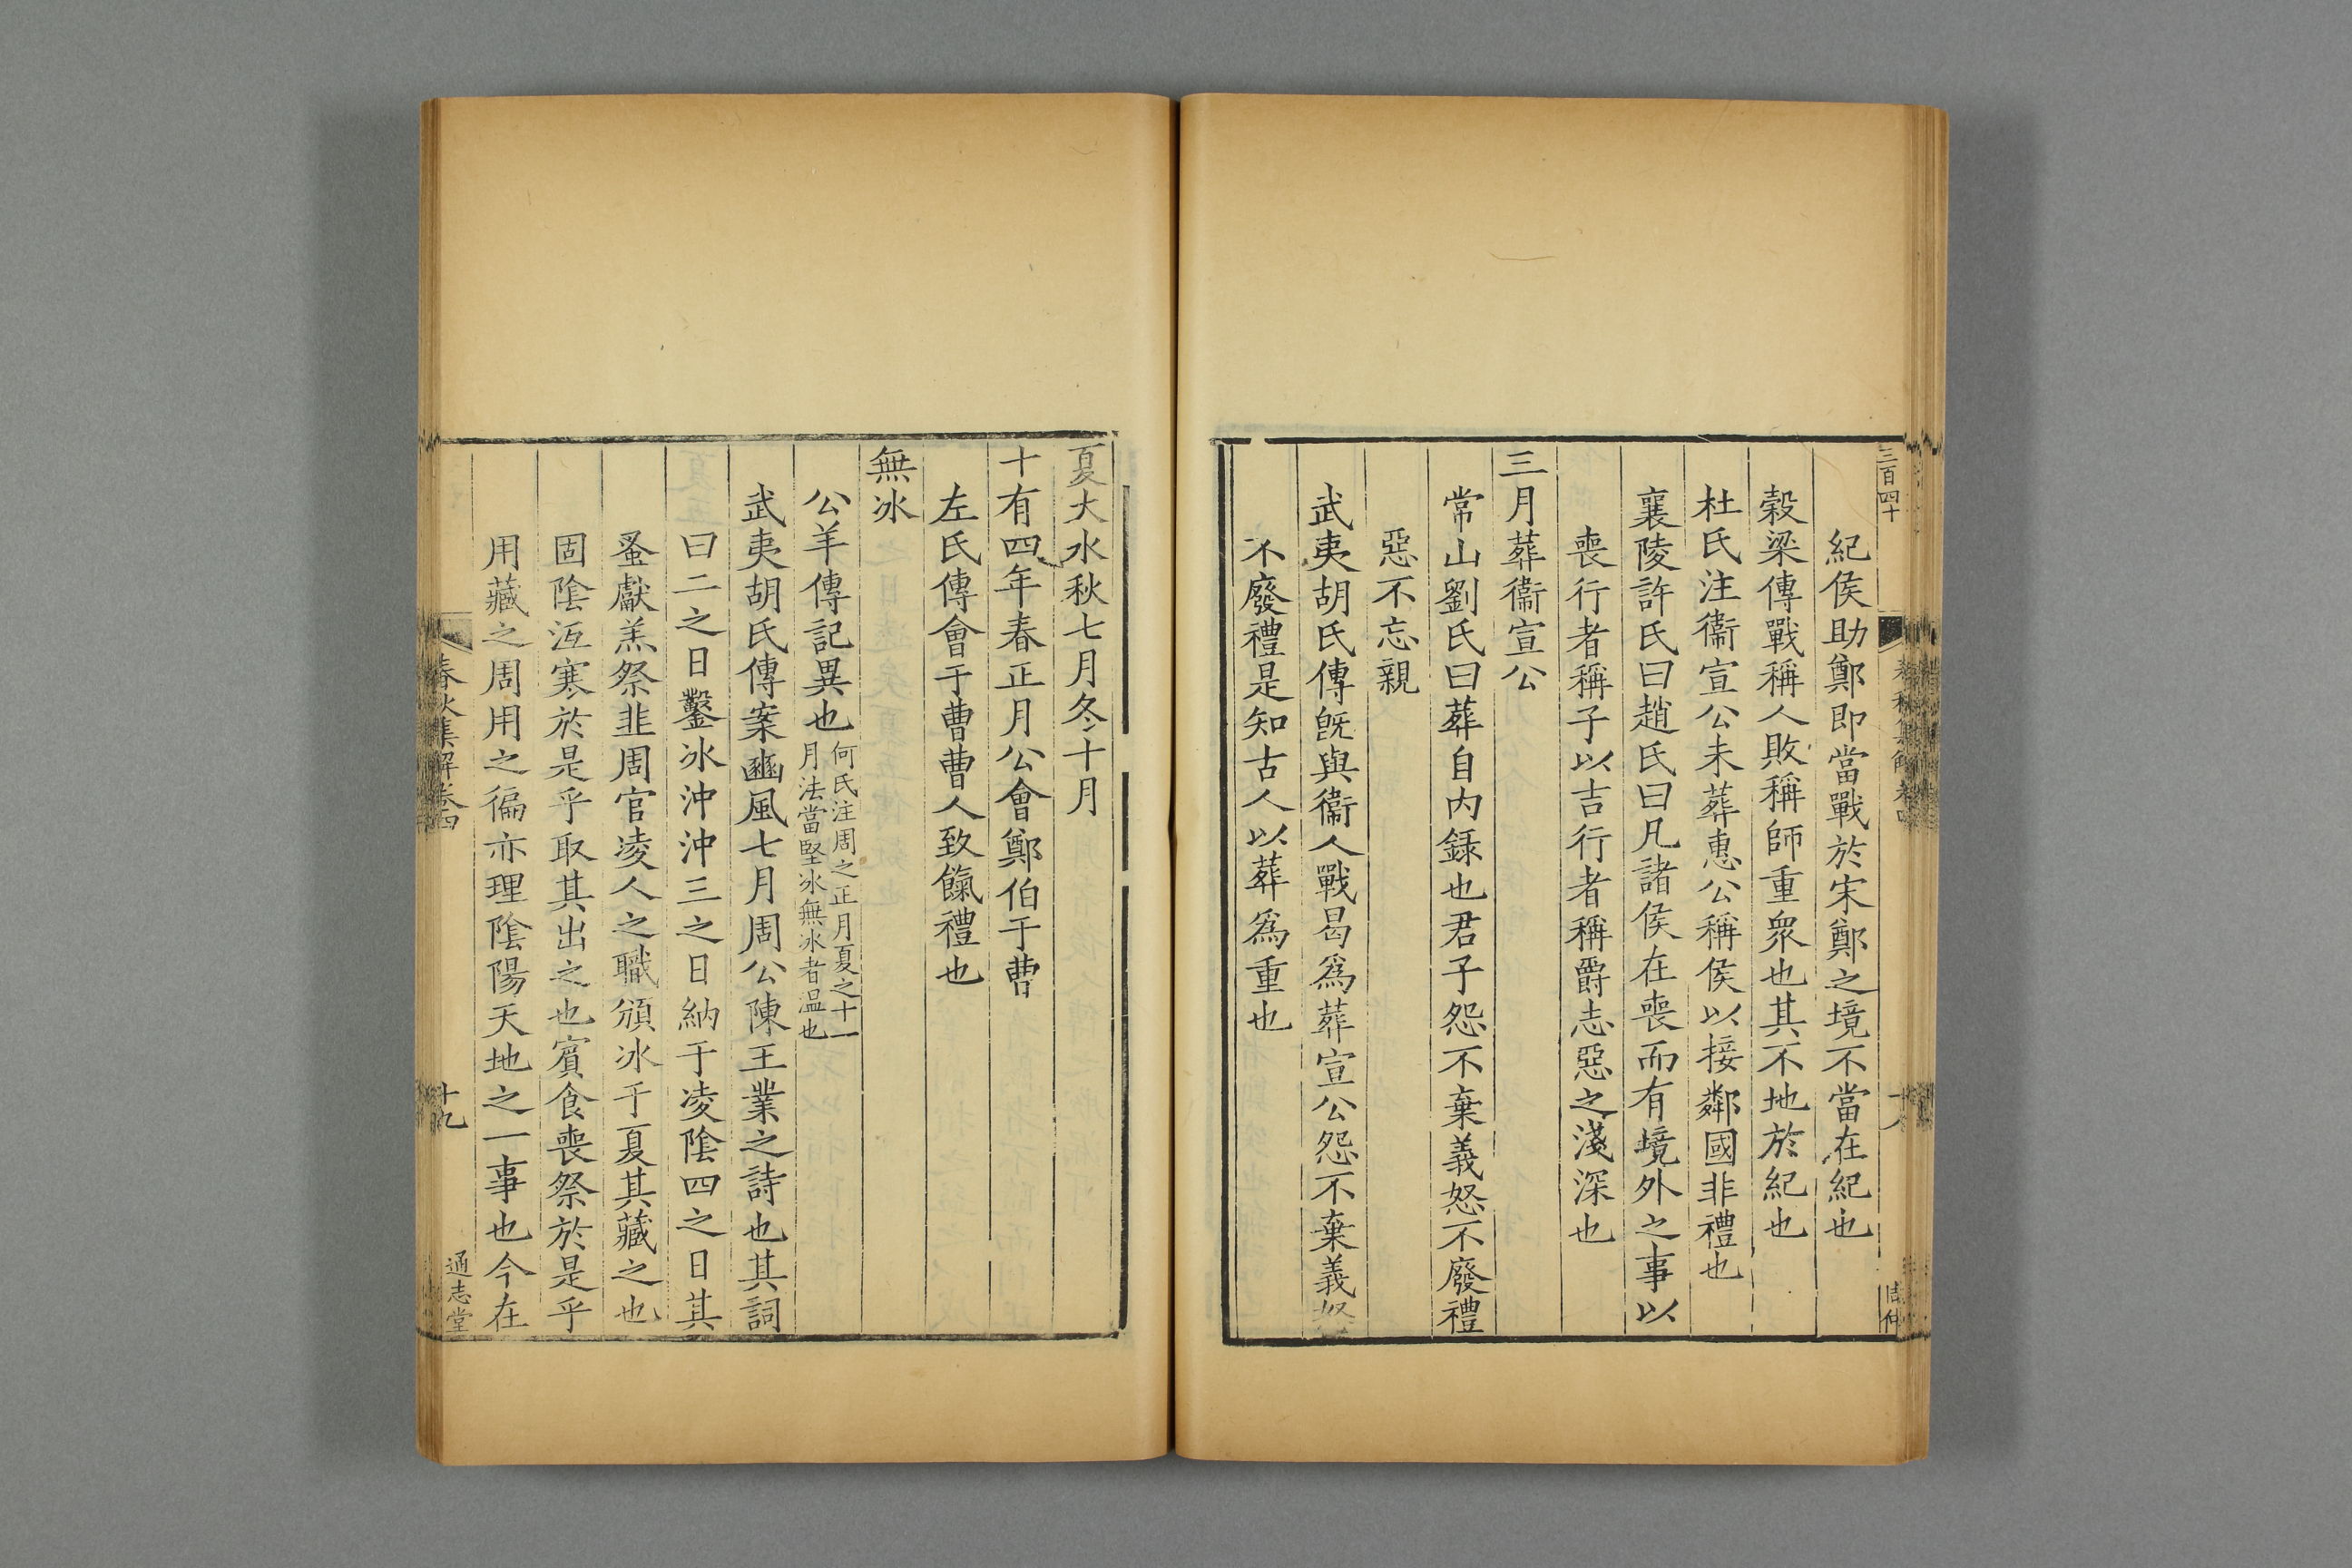 三百四十
紀侯助鄭即當戰於宋鄭之境不當在紀也
穀梁傳戰稱人敗稱師重衆也其不地於紀也
杜氏注衞宣公未葬惠公稱侯以接鄰國非禮也
襄陵許氏曰趙氏曰凡諸侯在喪而有境外之事以
喪行者稱子以吉行者稱爵志惡之淺深也
三月葬衞宣公
常山劉氏曰葬自内録也君子怨不棄義怒不廢禮
惡不忘親
武夷胡氏傳旣與衞人戰曷爲葬宣公怨不棄義怒
不廢禮是知古人以葬爲重也
夏大水秋七月冬十月
十有四年春正月公會鄭伯于曹
左氏傳會于曹曹人致餼禮也
無冰
公羊傳記異也何氏注周之正月夏之十一
月法當堅冰無冰者温也
武夷胡氏傳案豳風七月周公陳王業之詩也其詞
曰二之日鑿冰沖沖三之日納于凌陰四之日其
蚤獻羔祭韭周官凌人之職頒冰于夏其藏之也
固陰沍寒於是乎取其出之也賓食喪祭於是乎
用藏之周用之徧亦理陰陽天地之一事也今在
春秋集解卷四
十九
通志堂